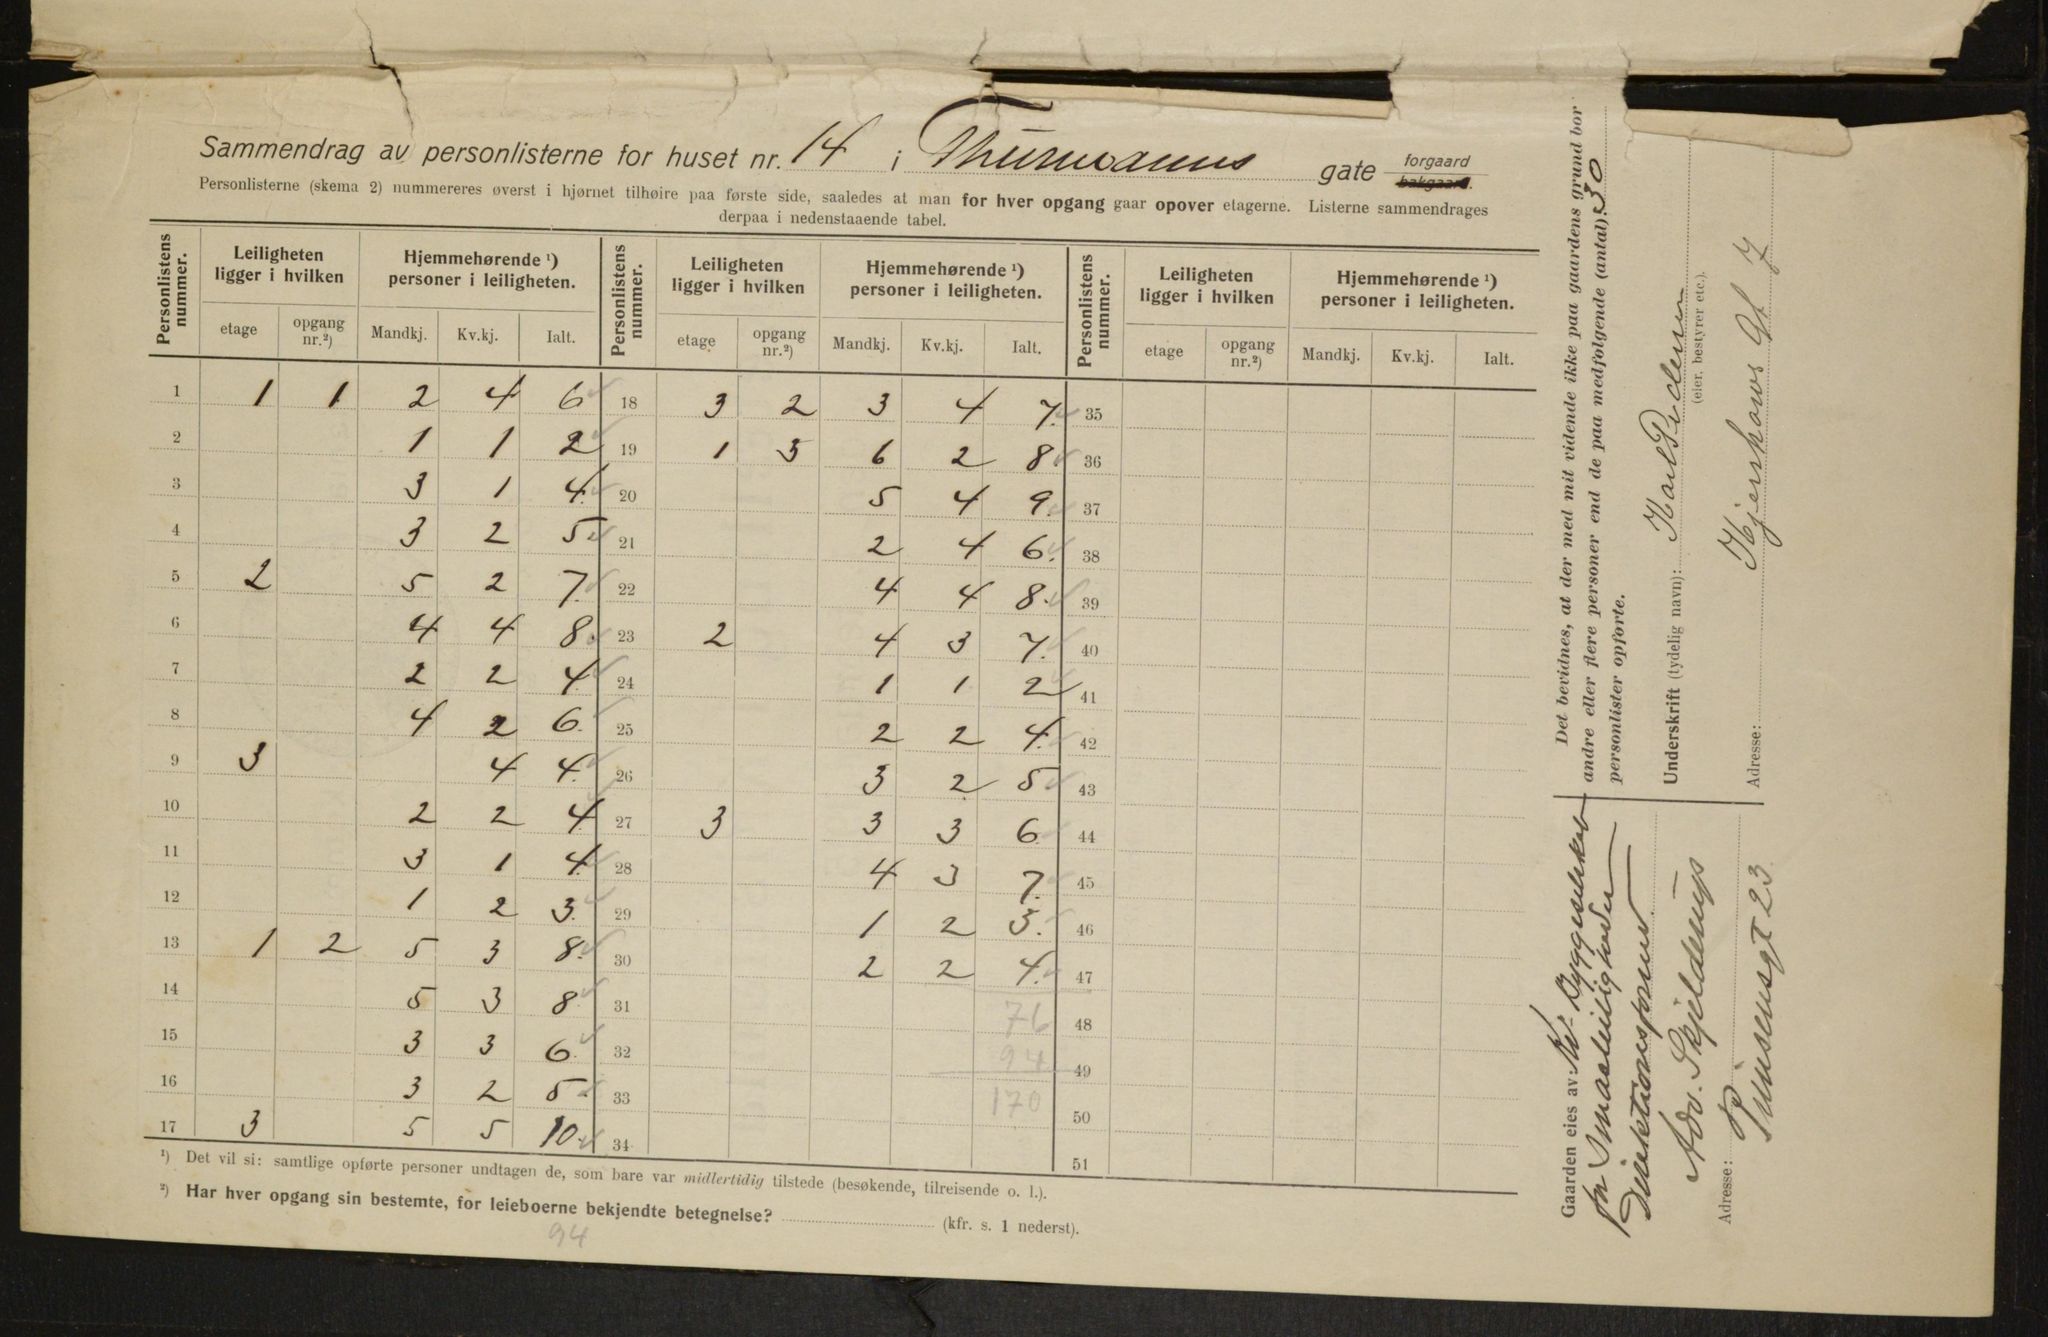 Sammendrag av personlisterne for huset nr. 14 i Thurmanns gate forgaard bakgaard.
Personlisterne (skema 2) nummereres øverst i hjørnet tilhøire paa første side, saaledes at man for hver opgang gaar opover etagerne. Listerne sammendrages
derpaa i nedenstaaende tabel.
Personlistens nummer. Leiligheten ligger i hvilken Hjemmehørende ¹) personer i leiligheten. Personlistens nummer. Leiligheten ligger i hvilken Hjemmehørende ¹) personer i leiligheten. Personlistens nummer. Leiligheten ligger i hvilken Hjemmehørende ¹) personer i leiligheten.
etage opgang nr.²) Mandkj. Kv.kj. Ialt. etage opgang nr.²) Mandkj. Kv.kj. Ialt. etage opgang nr.²) Mandkj. Kv.kj. Ialt.
1 1 1 2 4 6 18 3 2 3 4 7. 35
2 1 1 2 19 1 3 6 2 8. 36
3 3 1 4. 20 5 4 9. 37
4 3 2 5 21 2 4 6. 38
5 2 5 2 7. 22 4 4 8. 39
6 4 4 8. 23 2 4 3 7. 40
7 2 2 4. 24 1 1 2 41
8 4 2 6. 25 2 2 4. 42
9 3 4 4. 26 3 2 5 43
10 2 2 4 27 3 3 3 6. 44
11 3 1 4. 28 4 3 7. 45
12 1 2 3. 29 1 2 3. 46
13 1 2 5 3 8. 30 2 2 4. 47
14 5 3 8. 31 76 48
15 3 3 6. 32 94 49
16 3 2 5. 33 170 50
17 3 5 5 10. 34 51
¹) Det vil si: samtlige opførte personer undtagen de, som bare var midlertidig tilstede (besøkende, tilreisende o. l.).
²) Har hver opgang sin bestemte, for leieboerne bekjendte betegnelse? (kfr. s. 1 nederst).
94
Det bevidnes, at der med mit vidende ikke paa gaardens grund bor
andre eller flere personer end de paa medfølgende (antal) 30
personlister opførte.
Underskrift (tydelig navn): Karl Pedersen
(eier, bestyrer etc.).
Adresse: Hjerskows Gt 7
Gaarden eies av: Byggeselskab
for Smaaleiligheder
Direktionsformd.
Adv. Skjelderup
Adresse: Prinsensgt 23